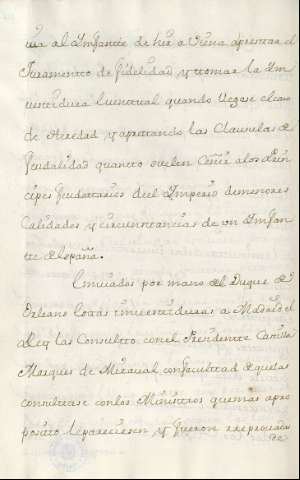 cia al Ynfante de hir a Viena a prestar el
Juramento de fidelidad y tomar la Ym
vestidura eventual quando llegase el caso
de heredad y apretando las Clausulas de
feudalidad quanto suelen ceñir a los Prin
cipes feudatarios del Ymperio de menores
Calidades y circunstancias de un Ynfan
te de España.
Embiados por mano del Duque de
Orleans estas imvestiduras a Madrid el
Rey las Consulto con el Presidente
Marques de Miraval con facultad de que las
consultase con los Ministros que mas apro
posito le pareciesen y fueron reprovadas
de